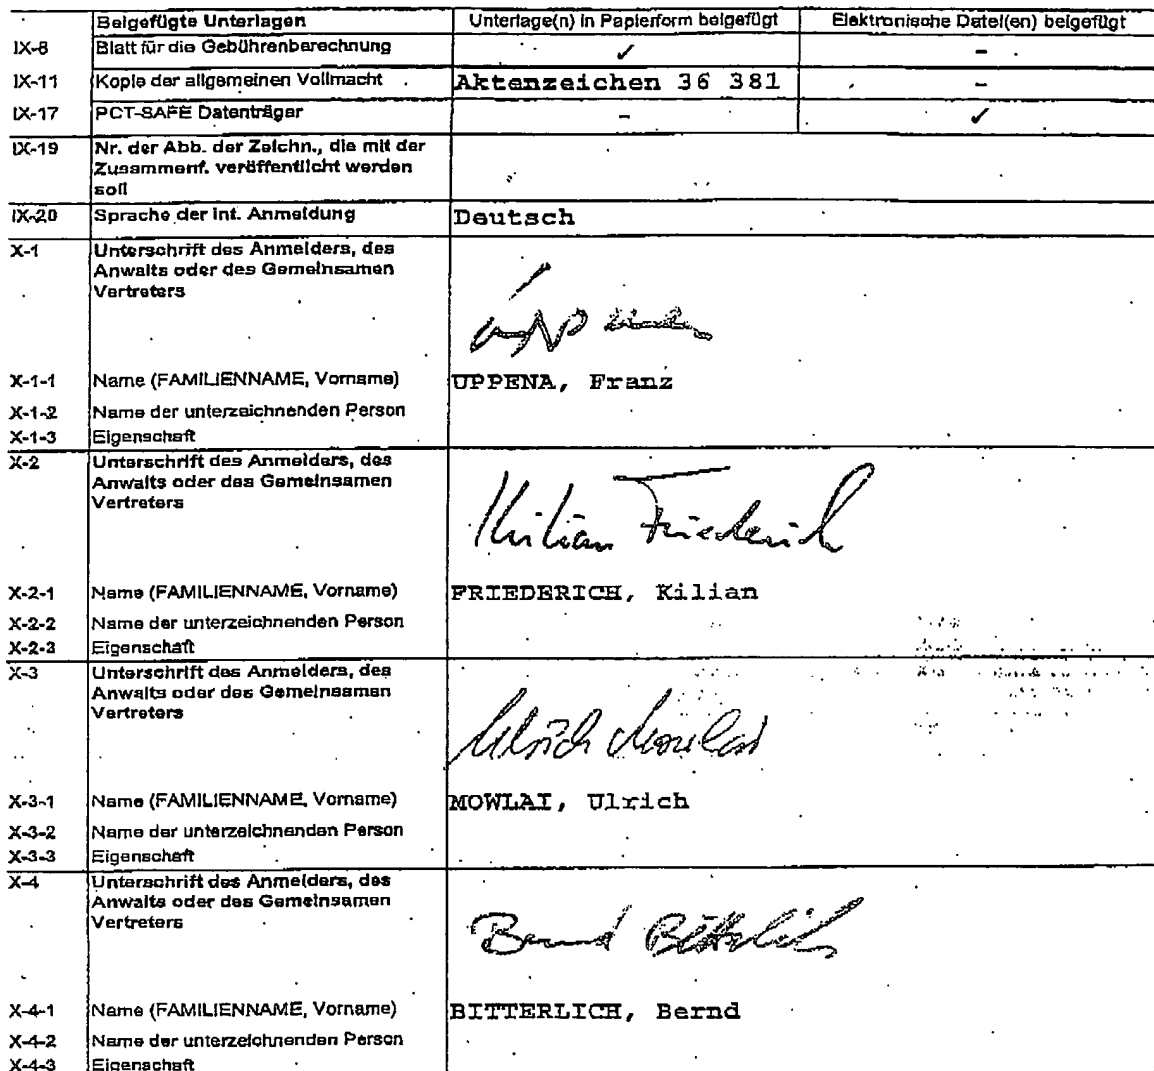 Beigefügte Unterlagen Unterlage(n) in Papierform beigefügt Elektronische Datei(en) beigefügt
IX-8 Blatt für die Gebührenberechnung ✓ –
IX-11 Kopie der allgemeinen Vollmacht Aktenzeichen 36 381 –
IX-17 PCT-SAFE Datenträger – ✓
IX-19 Nr. der Abb. der Zeichn., die mit der
Zusammenf. veröffentlicht werden
soll
IX-20 Sprache der Int. Anmeldung Deutsch
X-1 Unterschrift des Anmelders, des
Anwalts oder des Gemeinsamen
Vertreters
X-1-1 Name (FAMILIENNAME, Vorname) UPPENA, Franz
X-1-2 Name der unterzeichnenden Person
X-1-3 Eigenschaft
X-2 Unterschrift des Anmelders, des
Anwalts oder des Gemeinsamen
Vertreters
Kilian Friederich
X-2-1 Name (FAMILIENNAME, Vorname) FRIEDERICH, Kilian
X-2-2 Name der unterzeichnenden Person
X-2-3 Eigenschaft
X-3 Unterschrift des Anmelders, des
Anwalts oder des Gemeinsamen
Vertreters
Ulrich Mowlai
X-3-1 Name (FAMILIENNAME, Vorname) MOWLAI, Ulrich
X-3-2 Name der unterzeichnenden Person
X-3-3 Eigenschaft
X-4 Unterschrift des Anmelders, des
Anwalts oder des Gemeinsamen
Vertreters
Bernd Bitterlich
X-4-1 Name (FAMILIENNAME, Vorname) BITTERLICH, Bernd
X-4-2 Name der unterzeichnenden Person
X-4-3 Eigenschaft